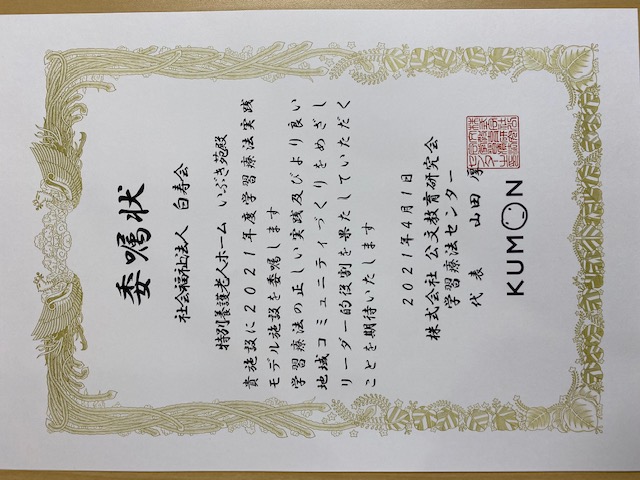 委嘱状
社会福祉法人 白寿会
特別養護老人ホーム いぶき苑殿
貴施設に2021年度学習療法実践
モデル施設を委嘱します
学習療法の正しい実践及びより良い
地域コミュニティづくりをめざし
リーダー的役割を果たしていただく
ことを期待いたします
2021年4月1日
株式会社 公文教育研究会
学習療法センター
代表 山田 淳
KUMON